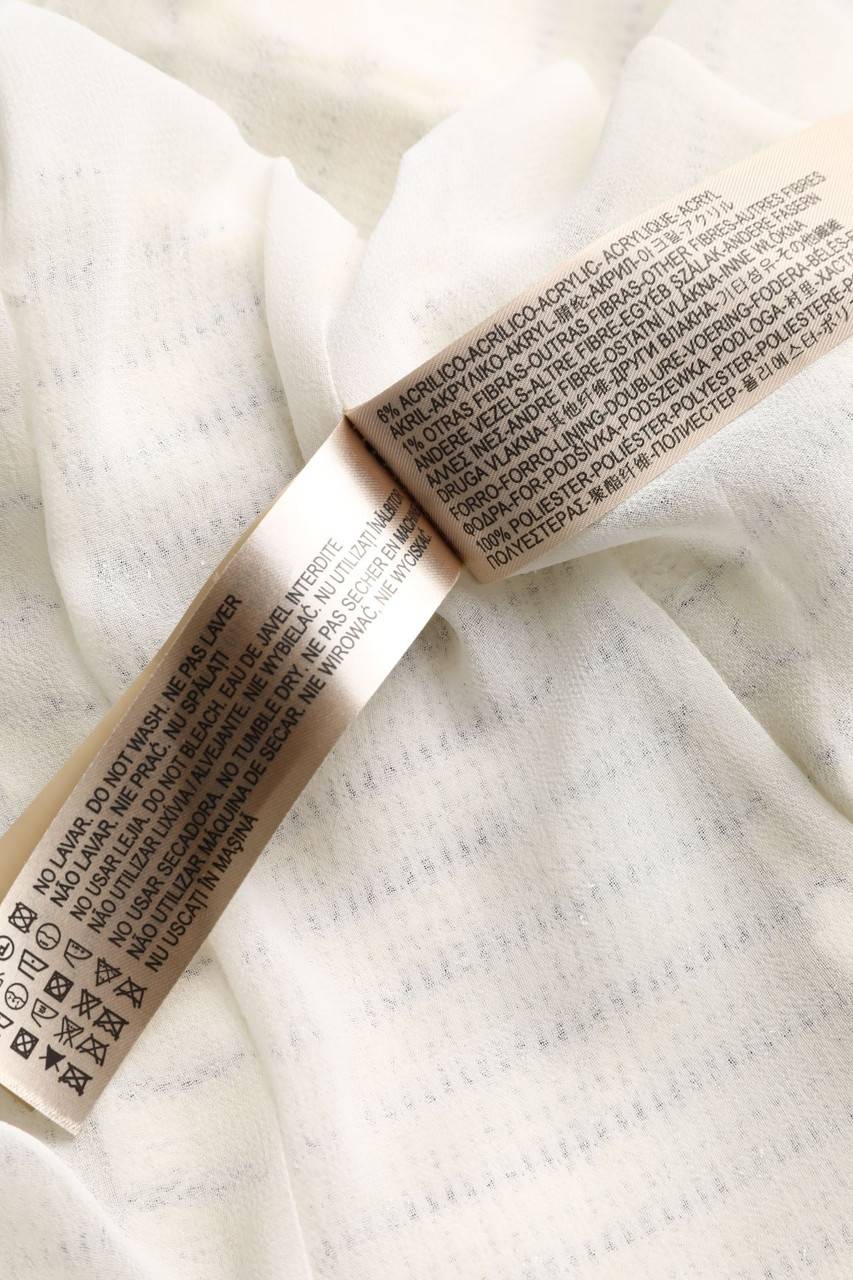 6% ACRILICO-ACRÍLICO-ACRYLIC-ACRYLIQUE-ACRYL
AKRIL-ΑΚΡΥΛΙΚΟ-AKRYL-腈纶-АКРИЛ-아크릴-アクリル
1% OTRAS FIBRAS-OUTRAS FIBRAS-OTHER FIBRES-AUTRES FIBRES
ANDERE VEZELS-ALTRE FIBRE-EGYÉB SZÁLAK-ANDERE FASERN
ΑΛΛΕΣ ΙΝΕΣ-ANDRE FIBRE-OSTATNÍ VLÁKNA-INNE WŁÓKNA
DRUGA VLAKNA-其他纤维-ДРУГИ ВЛАКНА-기타섬유-その他繊維
FORRO-FORRO-LINING-DOUBLURE-VOERING-FODERA-BÉLÉS-
ΦΟΔΡΑ-FOR-PODŠÍVKA-PODSZEWKA-PODLOGA-村里-ХАСТАР
100% POLIESTER-POLIÉSTER-POLYESTER-POLYESTER-POLIESTERE-
ΠΟΛΥΕΣΤΕΡΑΣ-聚酯纤维-ПОЛИЕСТЕР-폴리에스터-ポリ
NO LAVAR. DO NOT WASH. NE PAS LAVER
NÃO LAVAR. NIE PRAĆ. NU SPĂLAȚI
NO USAR LEJIA. DO NOT BLEACH. EAU DE JAVEL INTERDITE
NÃO UTILIZAR LIXÍVIA / ALVEJANTE. NIE WYBIELAĆ. NU UTILIZAȚI ÎNĂLBITOR
NO USAR SECADORA. NO TUMBLE DRY. NE PAS SECHER EN MACHINE
NÃO UTILIZAR MÁQUINA DE SECAR. NIE WIROWAĆ. NIE WYCISKAĆ.
NU USCAȚI ÎN MAȘINĂ